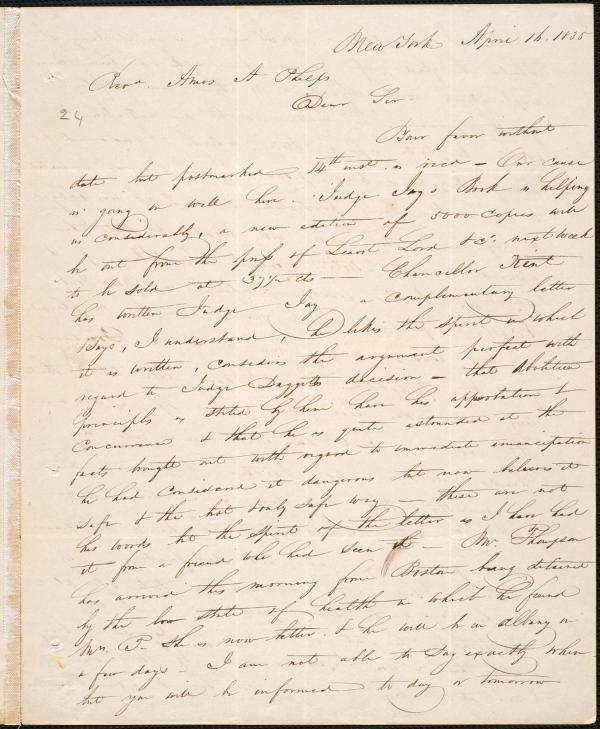 New York April 16. 1835
Revd. Amos A Phelps
24
Dear Sir
Your favor without
date but postmarked 14th inst. is recd - Our cause
is going on well here. Judge Jay's Book is helping
us considerably, a new edition of 5000 copies will
be out from the press of Leavitt Lord & Co. next week
to be sold at 37½ cts - Chancellor Kent
has written Judge Jay a complimentary letter
Says, I understand, he likes the spirit in which
it is written, considers the argument perfect with
regard to Judge Daggetts decision - that Abolition
principles as stated by him have his approbation &
concurrence & that he is quite astounded at the
facts brought out with regard to immediate emancipation
he had considered it dangerous but now believes it
safe & the best & only safe way - these are not
his words but the spirit of the letter as I have had
it from a friend who had seen it - Mr. Thompson
has arrived this morning from Boston being detained
by the low state of health in which he found
Mrs. T. She is now better. & he will be in Albany in
a few days - I am not able to say exactly when
but you will be informed to day or tomorrow